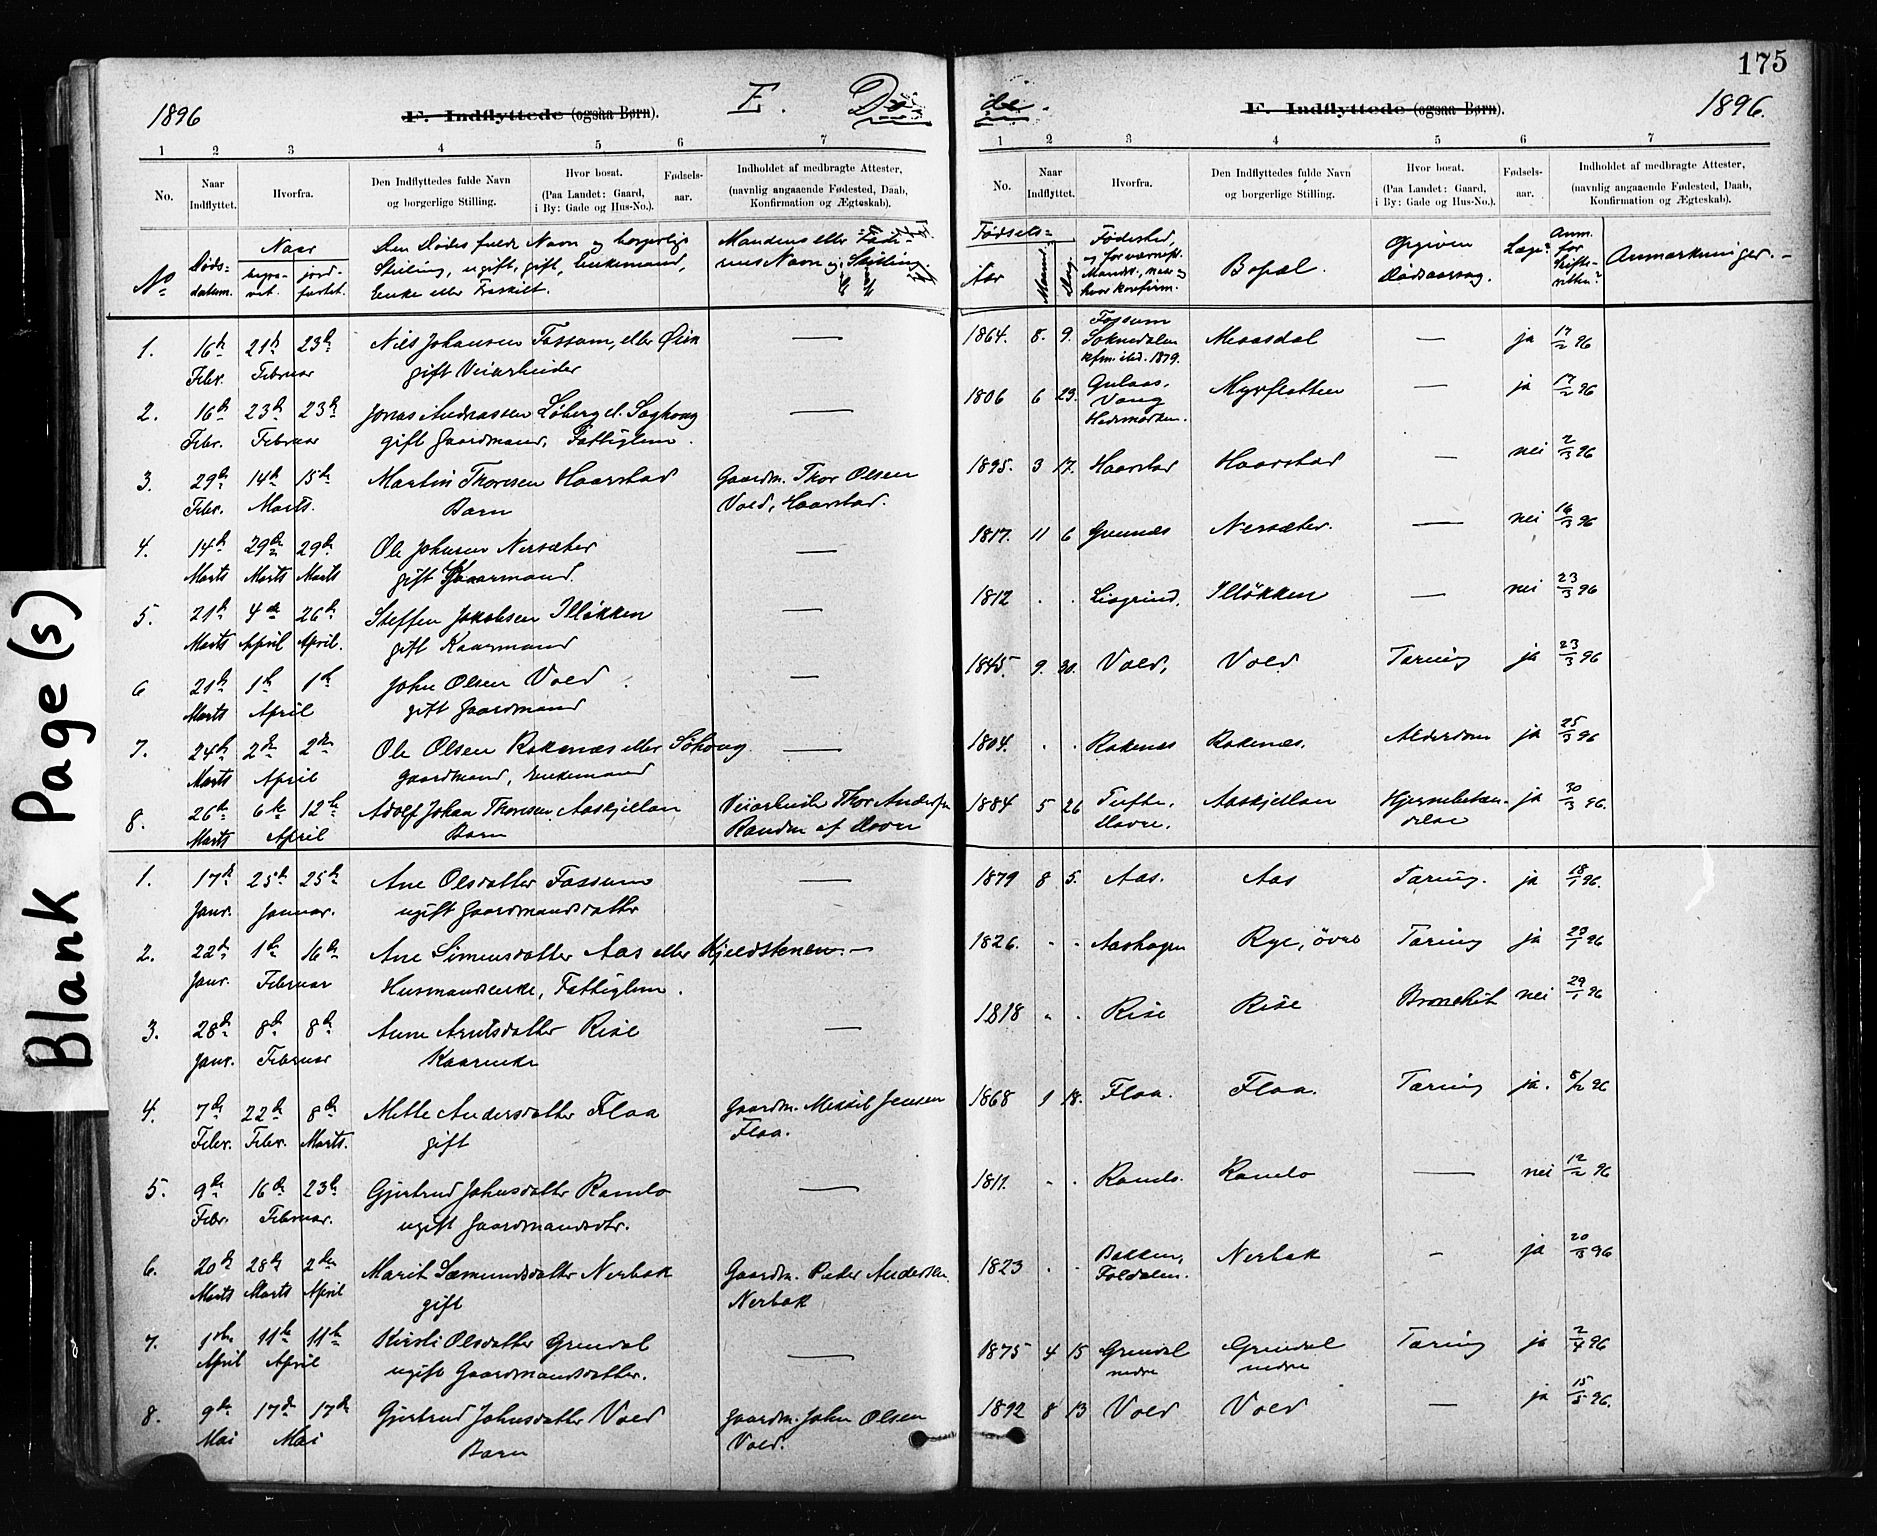 175
1896
F. Indflyttede (ogsaa Børn).
E. Døde.
F. Indflyttede (ogsaa Børn).
1896.
1 2 3 4 5 6 7
1 2 3 4 5 6 7
No. Naar Indflyttet. Hvorfra. Den Indflyttedes fulde Navn og borgerlige Stilling. Hvor bosat. (Paa Landet: Gaard, i By: Gade og Hus-No.). Fødsels-aar. Indholdet af medbragte Attester, (navnlig angaaende Fødested, Daab, Konfirmation og Ægteskab).
No. Naar Indflyttet. Hvorfra. Den Indflyttedes fulde Navn og borgerlige Stilling. Hvor bosat. (Paa Landet: Gaard, i By: Gade og Hus-No.). Fødsels-aar. Indholdet af medbragte Attester, (navnlig angaaende Fødested, Daab, Konfirmation og Ægteskab).
No Døds-datum. Naar begra-vet. jord-fæstet. Den Dødes fulde Navn og borgerlige Stilling, ugift, gift, Enkemand, Enke eller Fraskilt. Mandens eller Fade-rens Navn og Stilling.
Fødsels= Aar Maaned Dag Fødested, Bopæl. Opgiven Dødsaarsag. Læge? Anm. for Skifte-retten? Anmærkninger.
1. 16de Febr. 21de 23de Februar Nils Johansen Fossum, eller Øien — 1864. 8. 9. Fossum Soknedalen kfm. ibid. 1879. Meaasdal — ja 17/2 96
gift Veiarbeider
2. 16de Febr. 23de 23de Februar Jonas Andreassen Løberg el. Soghoug — 1806 6 23. Gulaas, Vang Hedemarken. Myrslotten — ja 17/2 96
gift Gaardmand, Fattiglem.
3. 29de Febr. 14de 15de Marts. Martin Thoresen Haarstad Gaardm. Thor Olsen Vold, Haarstad. 1895. 3 17. Haarstad Haarstad — nei 2/3 96
Barn
4. 14de Marts 29de Marts 29de Marts Ole Johnsen Nersæter — 1817. 11 6 Grønnæs Nersæter. — nei 16/3 96
gift Kaarmand.
5. 21de Marts 4de April 26de April. Steffen Jakobsen Illøkken — 1812 . . Liagrind, Illøkken — nei 23/3 96
gift Kaarmand
6 21de Marts 1ste 1ste April John Olsen Vold — 1845. 9. 30. Vold, Vold Tæring ja 23/3 96
gift Gaardmand
7. 24de Marts 2den 2den April Ole Olsen Rokenæs eller Søhoug — 1804. . . Rokenæs Rokenæs. Alderdom ja 25/3 96
Gaardmand, Enkemand
8. 26de Marts 6te 12te April Adolf Johan Thoresen Aaskjellan Veiarbeider Thor Anderssen Randen af Hovin 1884 5 26 Tufte, Hovin. Aaskjellan Hjernebetændelse ja 30/3 96.
Barn
1. 17de Janr. 25de 25de Januar. Ane Olsdatter Fossum — 1879 8 5. Aas. Aas Tæring. ja 18/1 96.
ugift Gaardmandsdatter
2. 22de Janr. 1ste 16de Februar Ane Simensdatter Aas eller Kjeldstenen. — 1826. - - Aashagen Rye, øvre Tæring ja 23/1 96
Husmandsenke, Fattiglem.
3. 28de Janr. 8de 8de Februar Anne Arntsdatter Rise — 1818 - . Rise Rise Bronchit nei 29/1 96
Kaarenke
4. 7de Febr. 22de Febr. 8de Marts. Mette Andersdatter Floa Gaardm. Mikkel Jensen Floa. 1868 1 18. Floa. Floa. Tæring ja. 8/2 96
gift
5. 9de Febr. 16de 23de Februar. Gjertrud Johnsdatter Ramlo — 1811. - . Ramlo. Ramlo — nei 12/2 96
ugift Gaardmandsdtr.
6. 20de Marts 28de Marts 2den April Marit Sæmundsdatter Nerbak Gaardm. Peder Andersen Nerbak 1823 . - Bakken, Foldalen. Nerbak - ja 20/3 96
gift
7. 1ste April 11te 11te April Kirsti Olsdatter Grindal — 1875 4 15 Grindal nedre Grindal nedre Tæring ja 2/4 96
ugift Gaardmandsdatter.
8. 9de Mai 17de 17de Mai Gjertrud Johnsdatter Vold Gaardm. John Olsen Vold. 1892 8 13 Vold Vold — ja 15/5 96.
Barn
Blank Page(s)